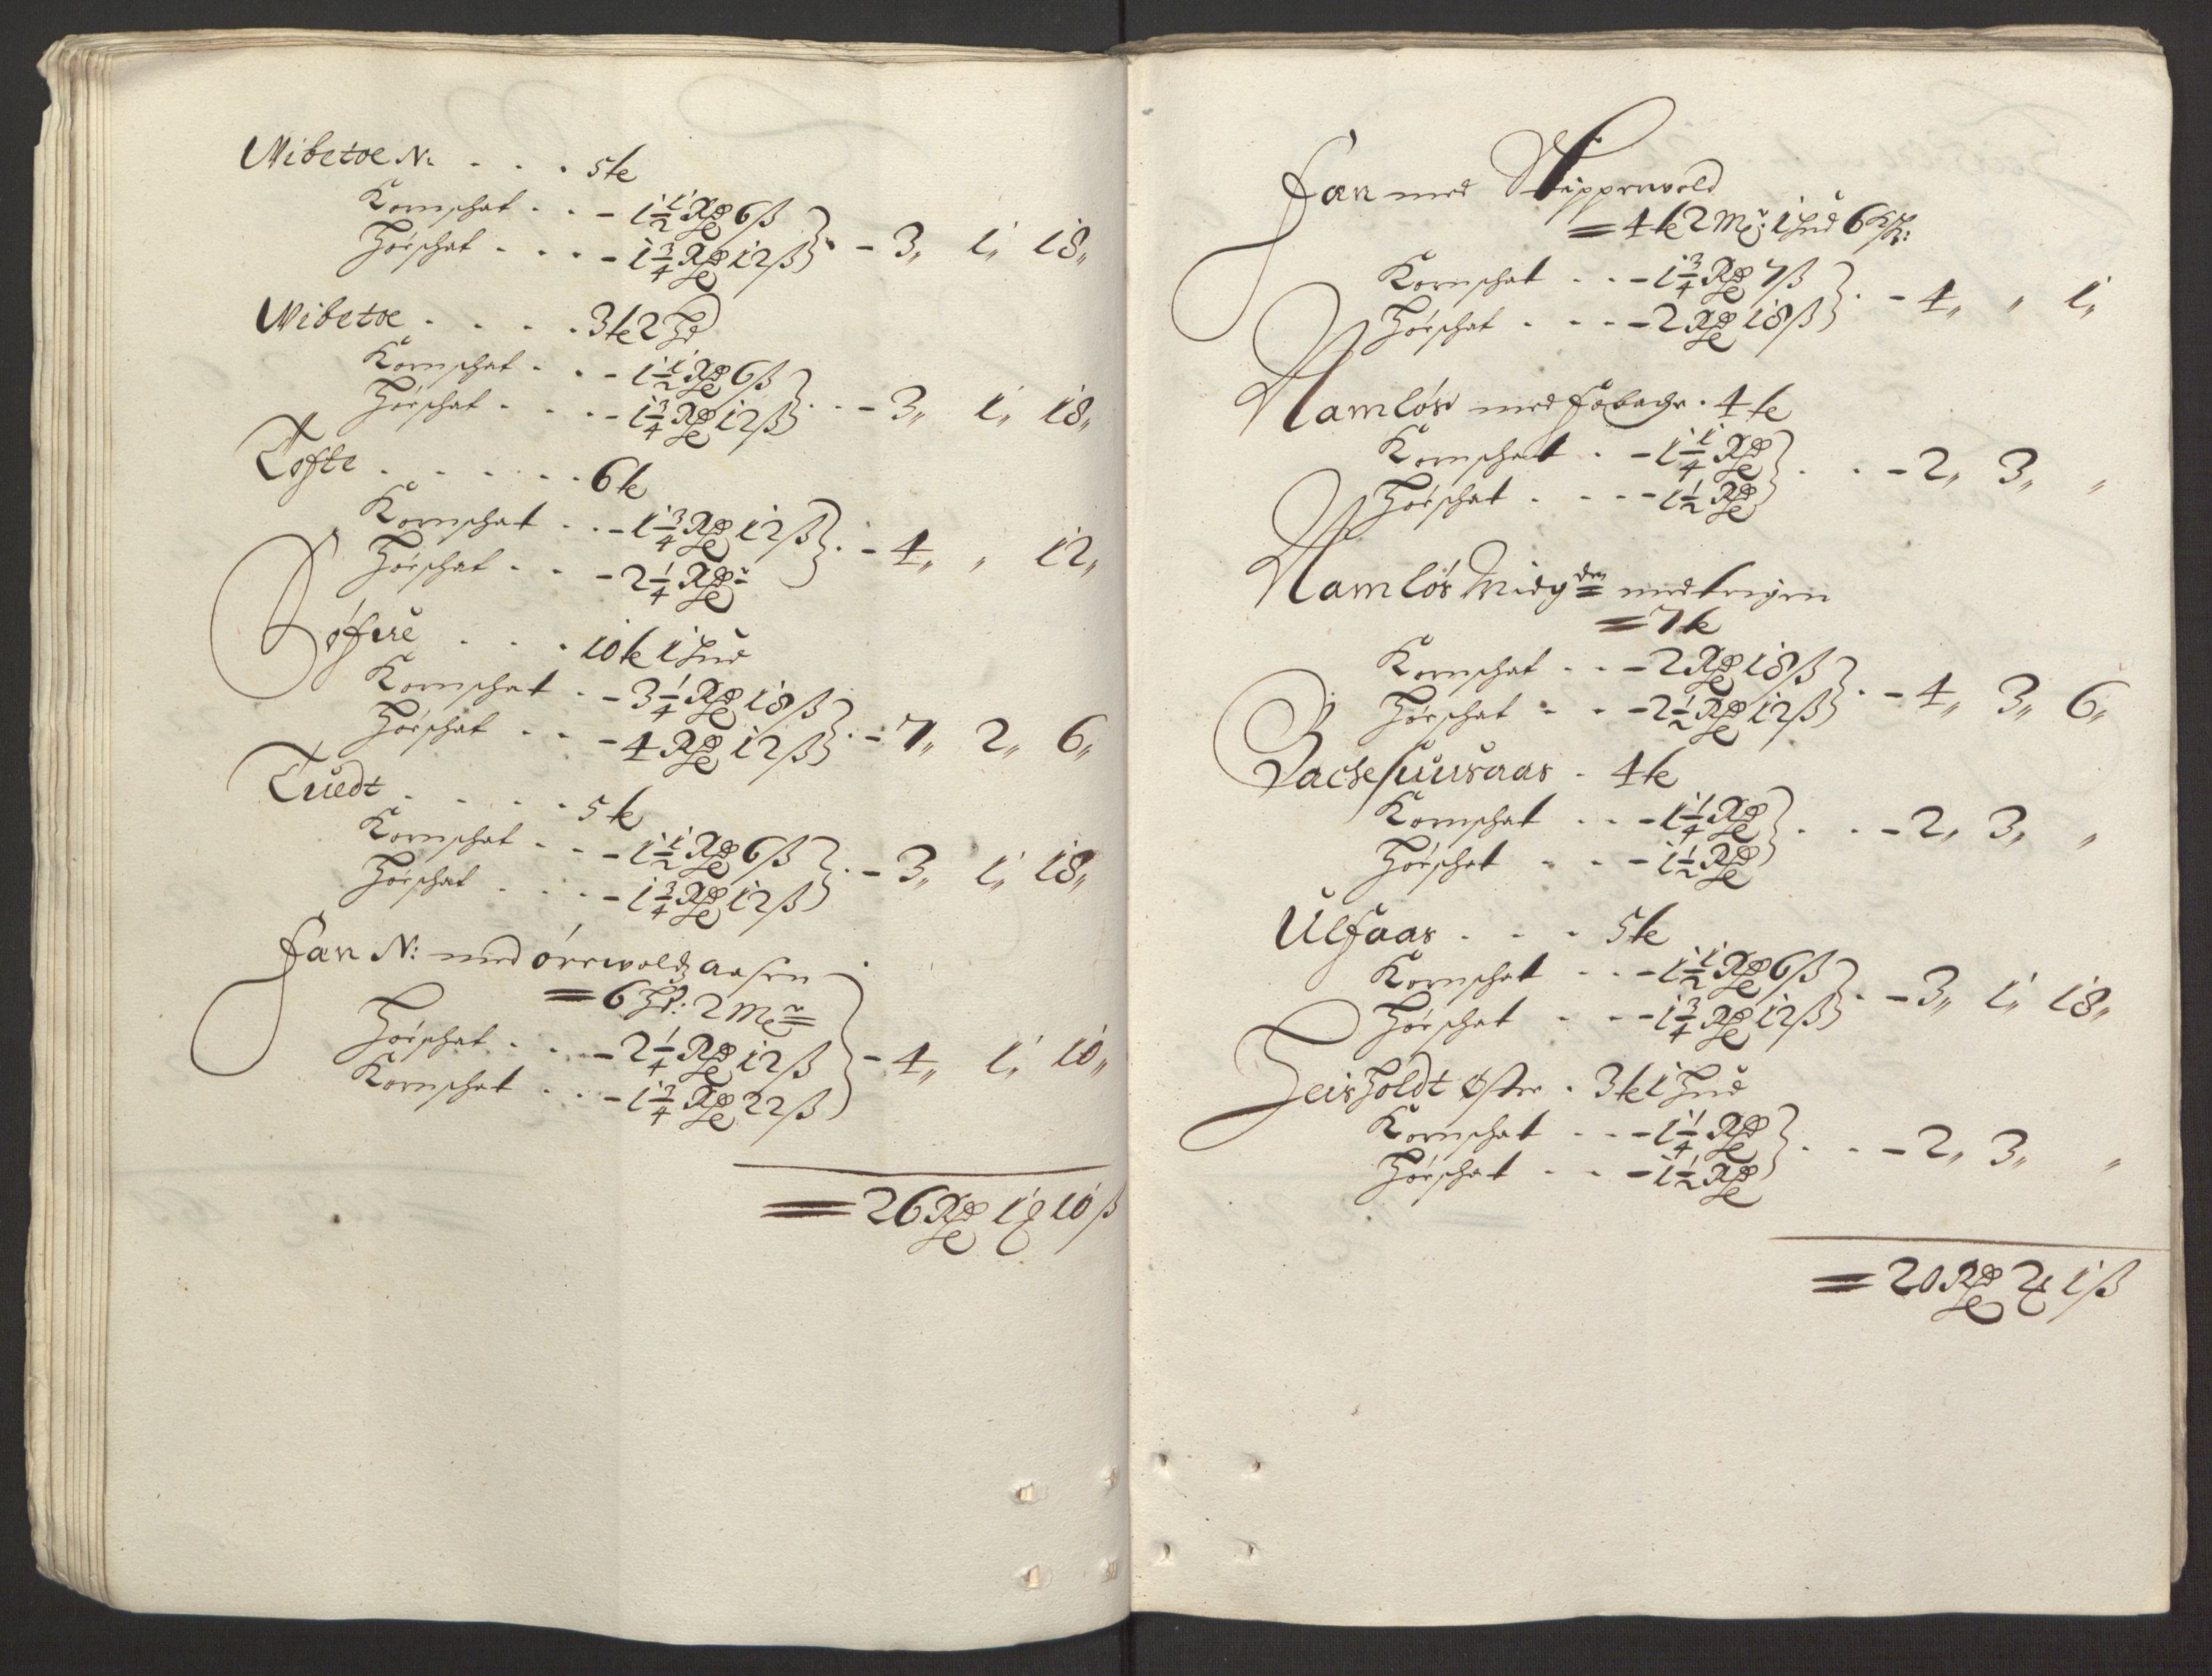 Wibetoe N: . . . 5 te
Kornschat . . - 1½ Rd 6 ß
Hørschat . . . - 1¾ Rd 12 ß - 3,, 1,, 18,,
Wibetoe . . . . 3 te 2 Hd
Kornschat . . - 1½ Rd 6 ß
Hørschat . . . - 1¾ Rd 12 ß - 3,, 1,, 18,,
Tofte . . . . . 6 te
Kornschat . . - 1¾ Rd 12 ß
Hørschat . . - 2¼ Rd - 4,, ,, 12,,
. . . 10 te 1 Hud
Kornschat . - 3¼ Rd 18 ß
Hørschat . . - 4 Rd 12 ß - 7,, 2,, 6,,
Tuedt . . . . 5 te
Kornschat . . - 1½ Rd 6 ß
Hørschat . . . - 1¾ Rd 12 ß - 3,, 1,, 18,,
Faan N: med Ørrwoldz aasen
= 6 Hd: 2 Mr
Hørschat . . - 2¼ Rd 12 ß
Kornschat . . - 1¾ Rd 22 ß - 4,, 1,, 10,,
= 26 Rd 1 ꝗ 10 ß
Faan med Skipperwold
= 4 te 2 Mr: 1 Hud 6
Kornschat . . - 1¾ Rd 7 ß
Hørschat . . . - 2 Rd 18 ß - 4,, ,, 1,,
Namløs med . 4 te
Kornschat . - 1¼ Rd
Hørschat . . . - 1½ Rd . . - 2,, 3,, ,,
Namløs Midgden med
= 7 te
Kornschat . . - 2 Rd 18 ß
Hørschat . . - 2½ Rd 12 ß - 4,, 3,, 6,,
. 4 te
Kornschat . . - 1¼ Rd
Hørschat . . - 1½ Rd . . - 2,, 3,, ,,
Ulfaas . . . 5 te
Kornschat . . - 1½ Rd 6 ß
Hørschat . . - 1¾ Rd 12 ß - 3,, 1,, 18,,
Heisholdt Øster . 3 te 1 Hud
Kornschat . . - 1¼ Rd
Hørschat . . - 1½ Rd . . - 2,, 3,, ,,
= 20 Rd 2 ꝗ 1 ß